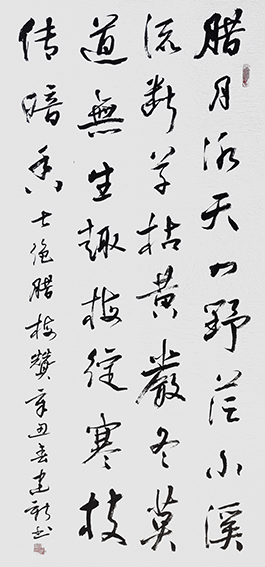 腊月冰天山野茫小溪
流断草枯黄嚴冬莫
道無生趣梅綻寒枝
传暗香七绝腊梅赞辛丑春建新书